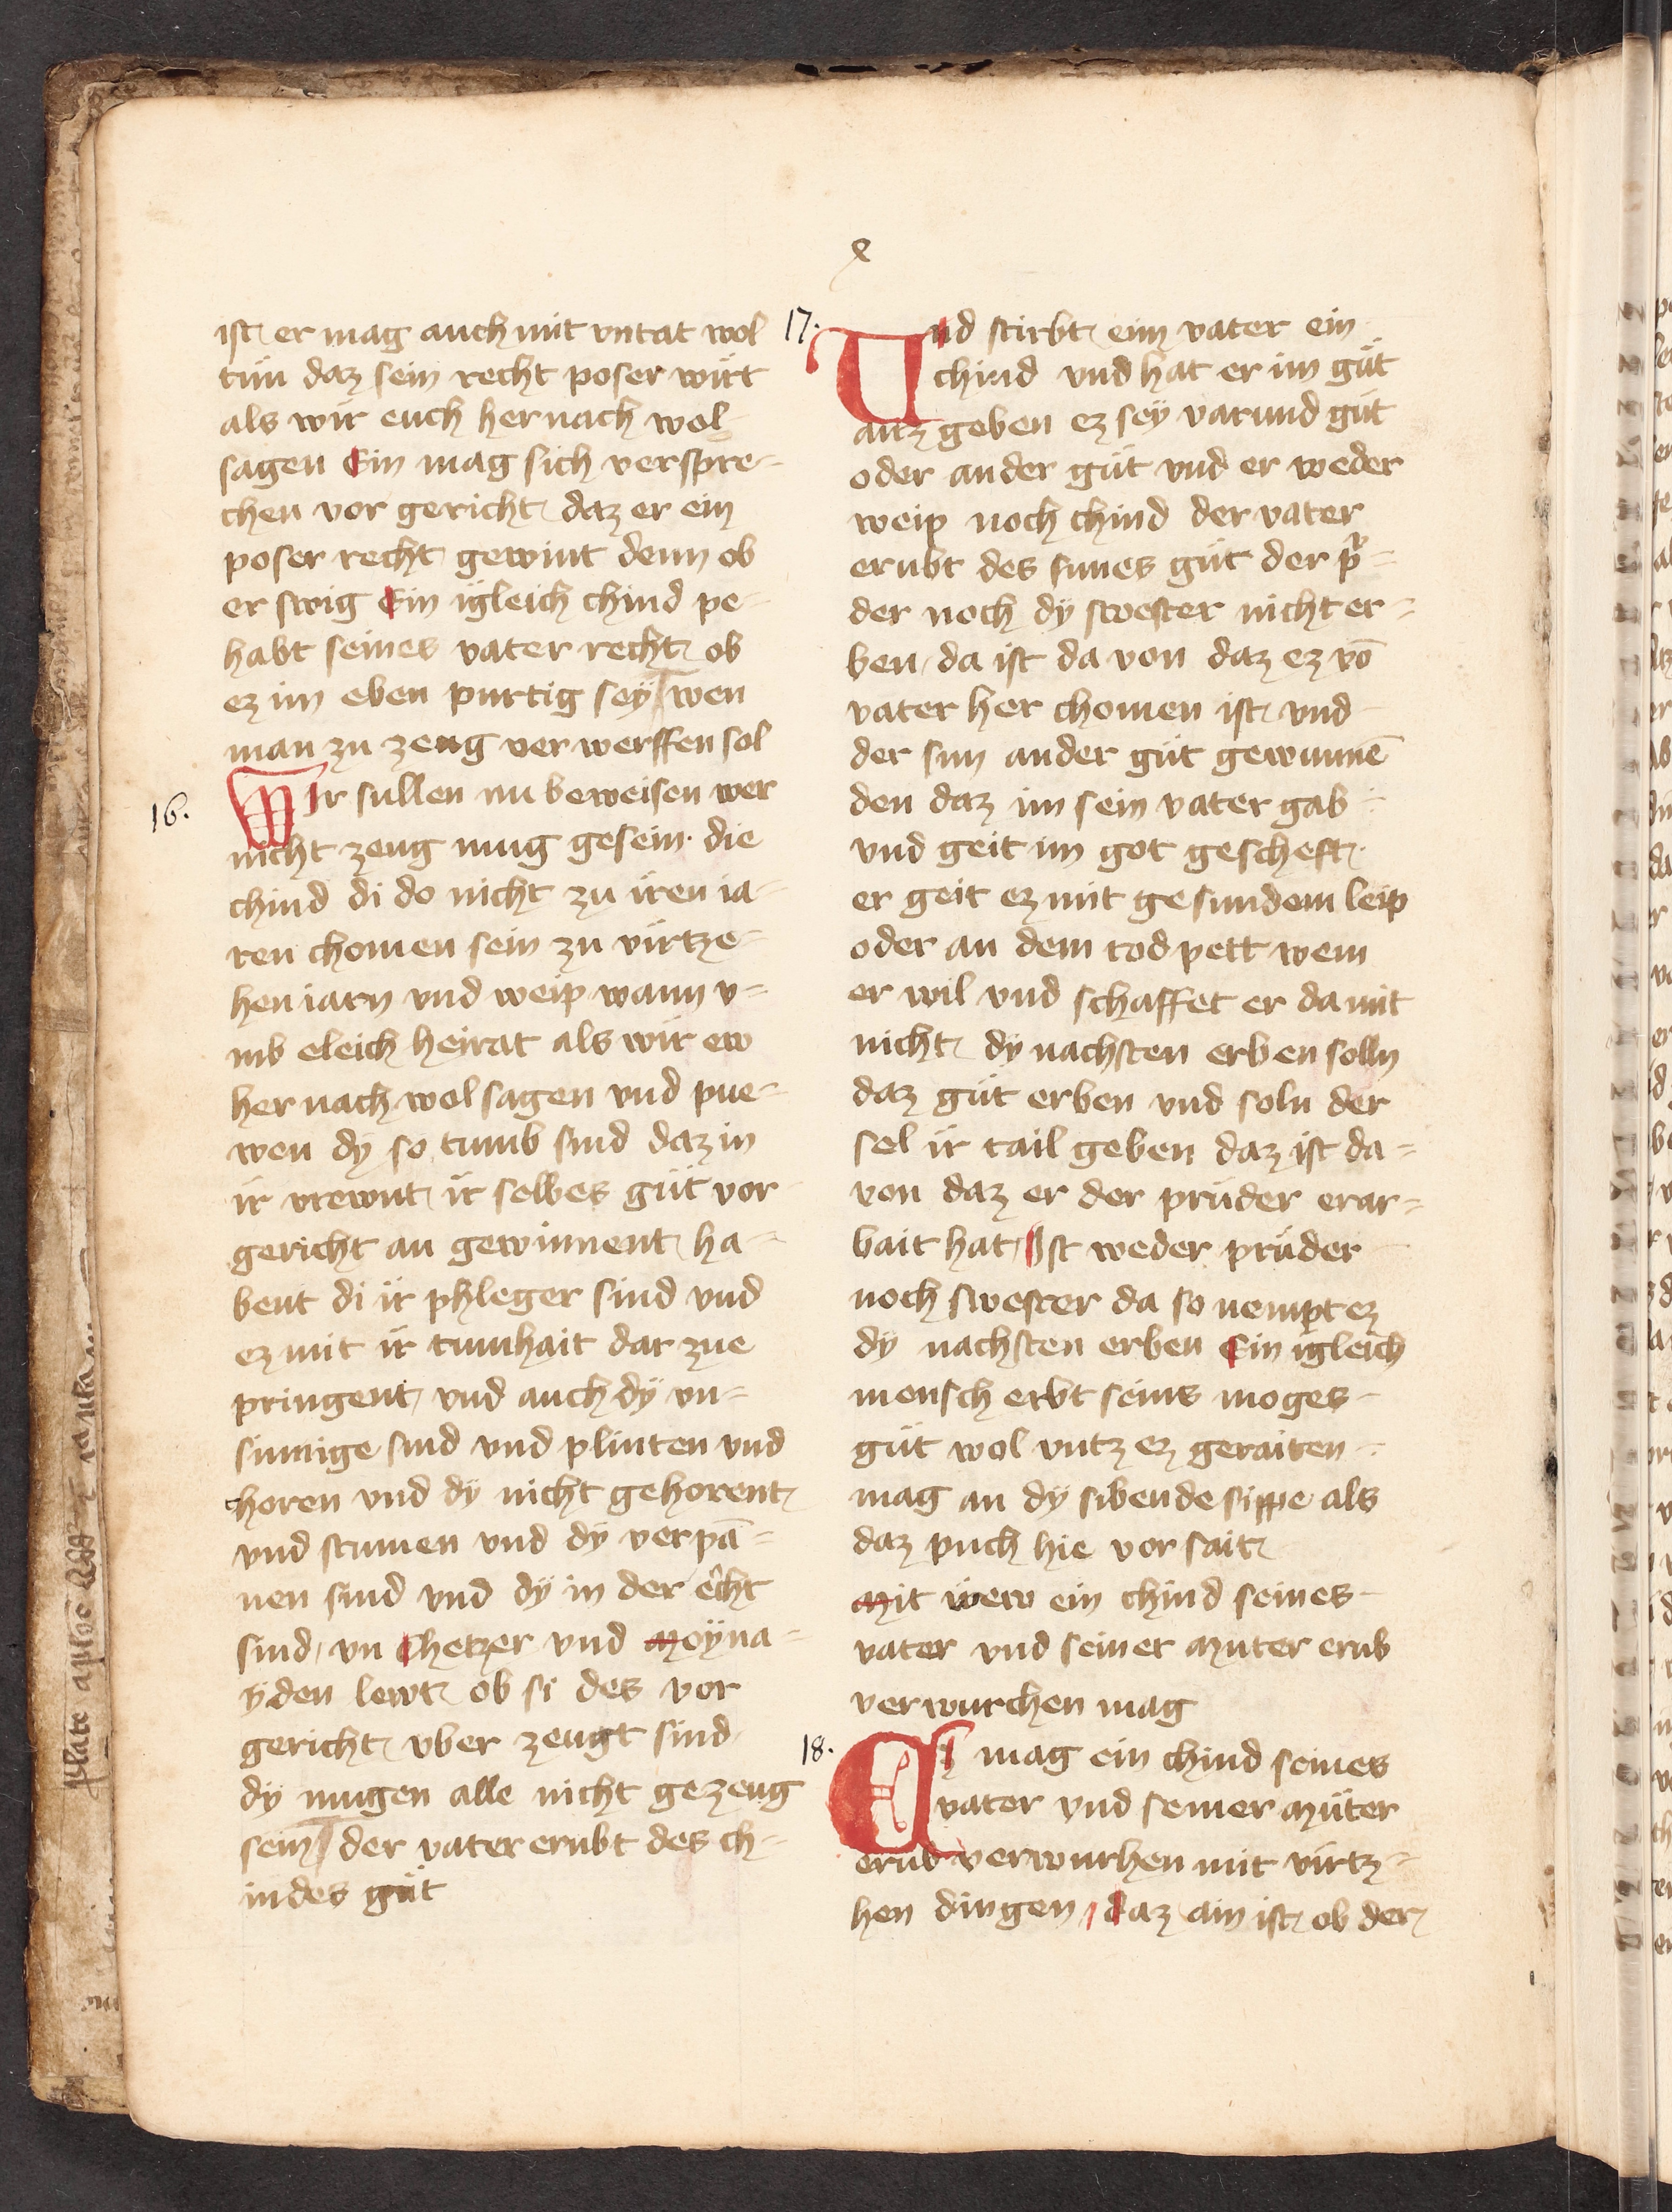 x
ist er mag auch mit vntat wol
tun daz sein recht poser wirt
als wir euch her nach wol
sagen Ein mag sich verspre-
chen vor gericht daz er ein
poser recht gewint denn ob
er swig Ein igleich chind pe-
habt seines vater recht ob
ez im eben purtig sey wen
man zu zeug ver werffen sol
16.
WIr sullen nu beweisen wer
nicht zeug mug gesein. die
chind di do nicht zu iren ia-
ren chomen sein zu virtze-
hen iarn vnd weip wann v-
mb eleich heirat als wir ew
her nach wol sagen vnd pue-
wen dy so tumb sind daz in
ir vrewnt ir selbes gut vor
gericht an gewinnent ha-
bent di ir phleger sind vnd
ez mit ir tumhait dar zue
pringent vnd auch dy vn-
sinnige sind vnd plinten vnd
horen vnd dy nicht gehorent
vnd stumen vnd dy verpā-
nen sind vnd dy in der echt
sind vn chetzer vnd Moyna-
yden lewt ob si des vor
gericht vber zeugt sind
dy mugen alle nicht gezeug
sein der vater erubt des ch-
indes gut
17.
Und stirbt eim vater ein
chind vnd hat er im gut
auz geben ez sey varund gut
oder ander gut vnd er weder
weip noch chind der vater
erubt des sunes gut der pr-
der noch dy swester nicht er-
ben da ist da von daz ez vō
vater her chomen ist vnd
der sun ander gut gewunnē
den daz im sein vater gab
vnd geit im got gescheft
er geit ez mit gesundem leip
oder an dem tod pett wem
er wil vnd schaffet er da mit
nicht dy nachsten erben solln
daz gut erben vnd soln der
sel ir tail geben daz ist da-
von daz er der pruder erar-
bait hat Ist weder pruder
noch swester da so nempt ez
dy nachsten erben Ein igleich
mensch erbt seins moges
gut wol vntz ez geraiten
mag an dy sibende sippe als
daz puch hie vor sait
Mit wew ein chind seines
vater vnd seiner Muter erub
verwurchen mag
18.
Es mag ein chind seines
vater vnd seiner Muter
erub verwurhen mit virtz-
hen dingen daz ain ist ob der